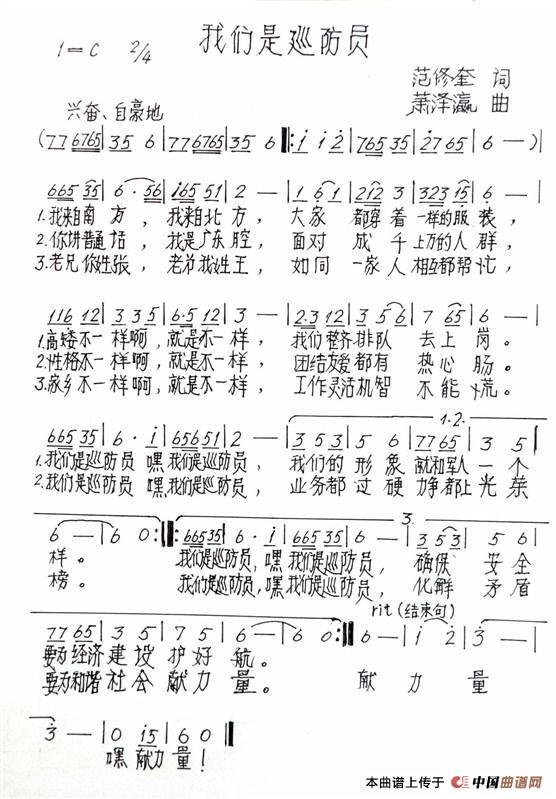 我们是巡防员
1=C 2/4
范修奎 词
萧泽瀛 曲
兴奋、自豪地
(77 6765|35 6|77 6765|35 6|:1 1 2|765 35|2765|6 —)|
665 35|6·56|i65 51|2 —|1 6 1|212 3|323 15|6 —|
1.我来自南方，我来自北方，大家都穿着一样的服装，
2.你讲普通话，我是广东腔，面对成千上万的人群，
3.老兄你姓张，老弟我姓王，如同一家人相互都帮忙，
116 12|3 3 5|6·5 12|3 —|2·3 12|3 5 6|7 65|6 —|
1.高矮不一样啊，就是不一样，我们整齐排队去上岗。
2.性格不一样啊，就是不一样，团结友爱都有热心肠。
3.家乡不一样啊，就是不一样，工作灵活机智不能慌。
1.2.
665 35|6·i|656 51|2 —|3 5 3|5 6|77 65|3 5|
1.我们是巡防员嘿我们是巡防员，我们的形象就和军人一个
2.我们是巡防员嘿我们是巡防员，业务都过硬力争都上光荣
3.
6 —|6 0:|:665 35|6·i|665 35|6 —|3 5 3|5 6|
样。我们是巡防员，嘿我们是巡防员，确保安全
榜。我们是巡防员，嘿我们是巡防员，化解矛盾
rit(结束句)
77 65|3 5|7 5|6 —|6 0:|6 —|i 2|3 —|
要为经济建设护好航。
要为和谐社会献力量。献力量
3 —|0 i5|6 0‖
嘿献力量！
本曲谱上传于 中国曲谱网